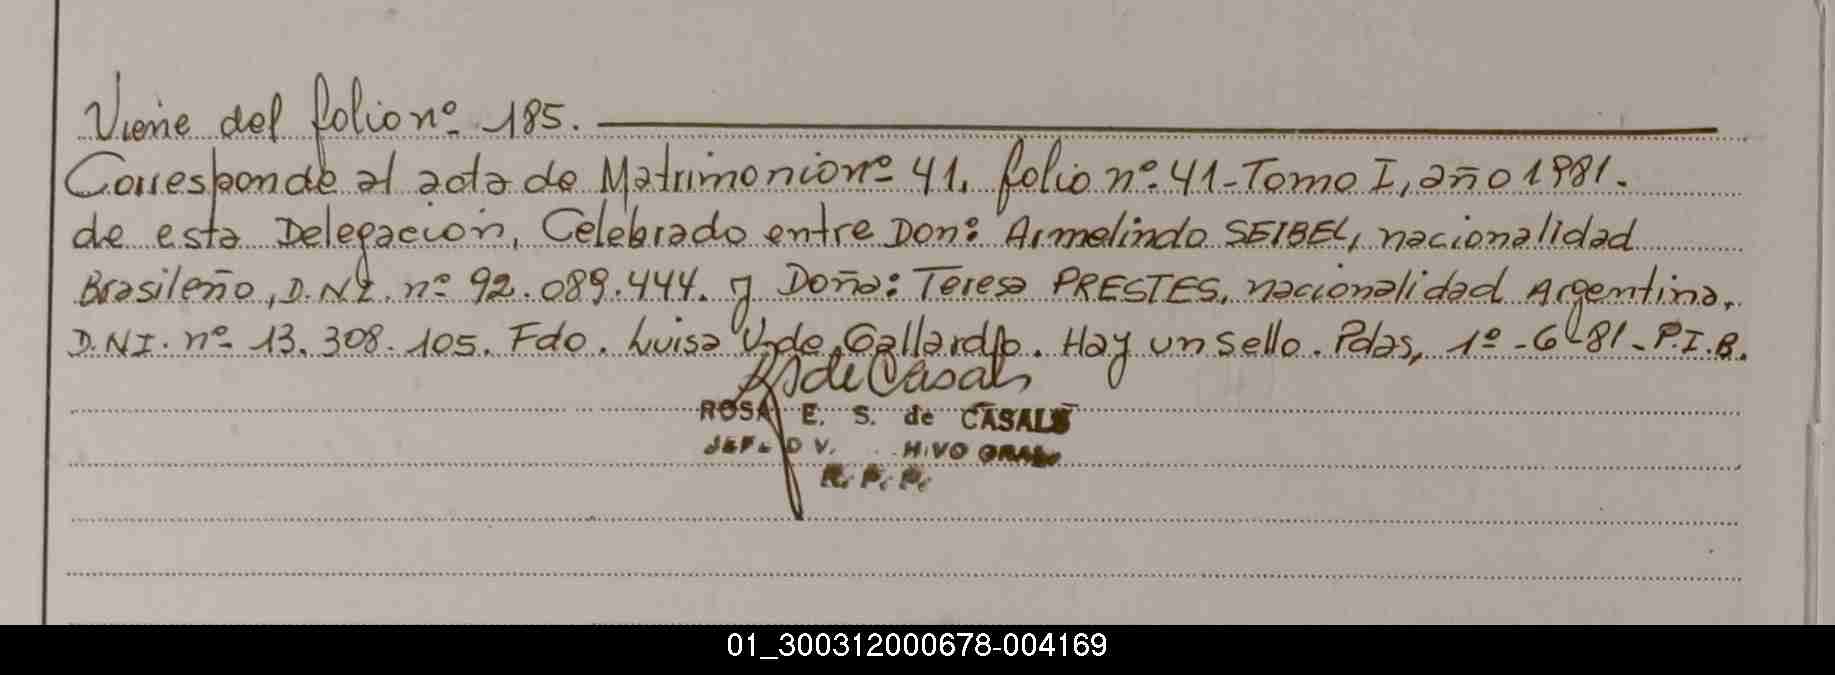 Viene del folio nº 185.
Corresponde al acta de Matrimonio nº 41. folio nº 41-Tomo I, año 1981.
de esta Delegación, Celebrado entre Don: Armelindo SEIBEL, nacionalidad
Brasileño, D.N.I. nº 92.089.444. y Doña: Teresa PRESTES, nacionalidad Argentina,
D.NI. nº 13.308.105. Fdo. Luisa V. de Gallardo. Hay un sello. Pdas, 1º-6-81-P.I.B.
ROSA E. S. de CASALS
R. P. P.
01_300312000678-004169